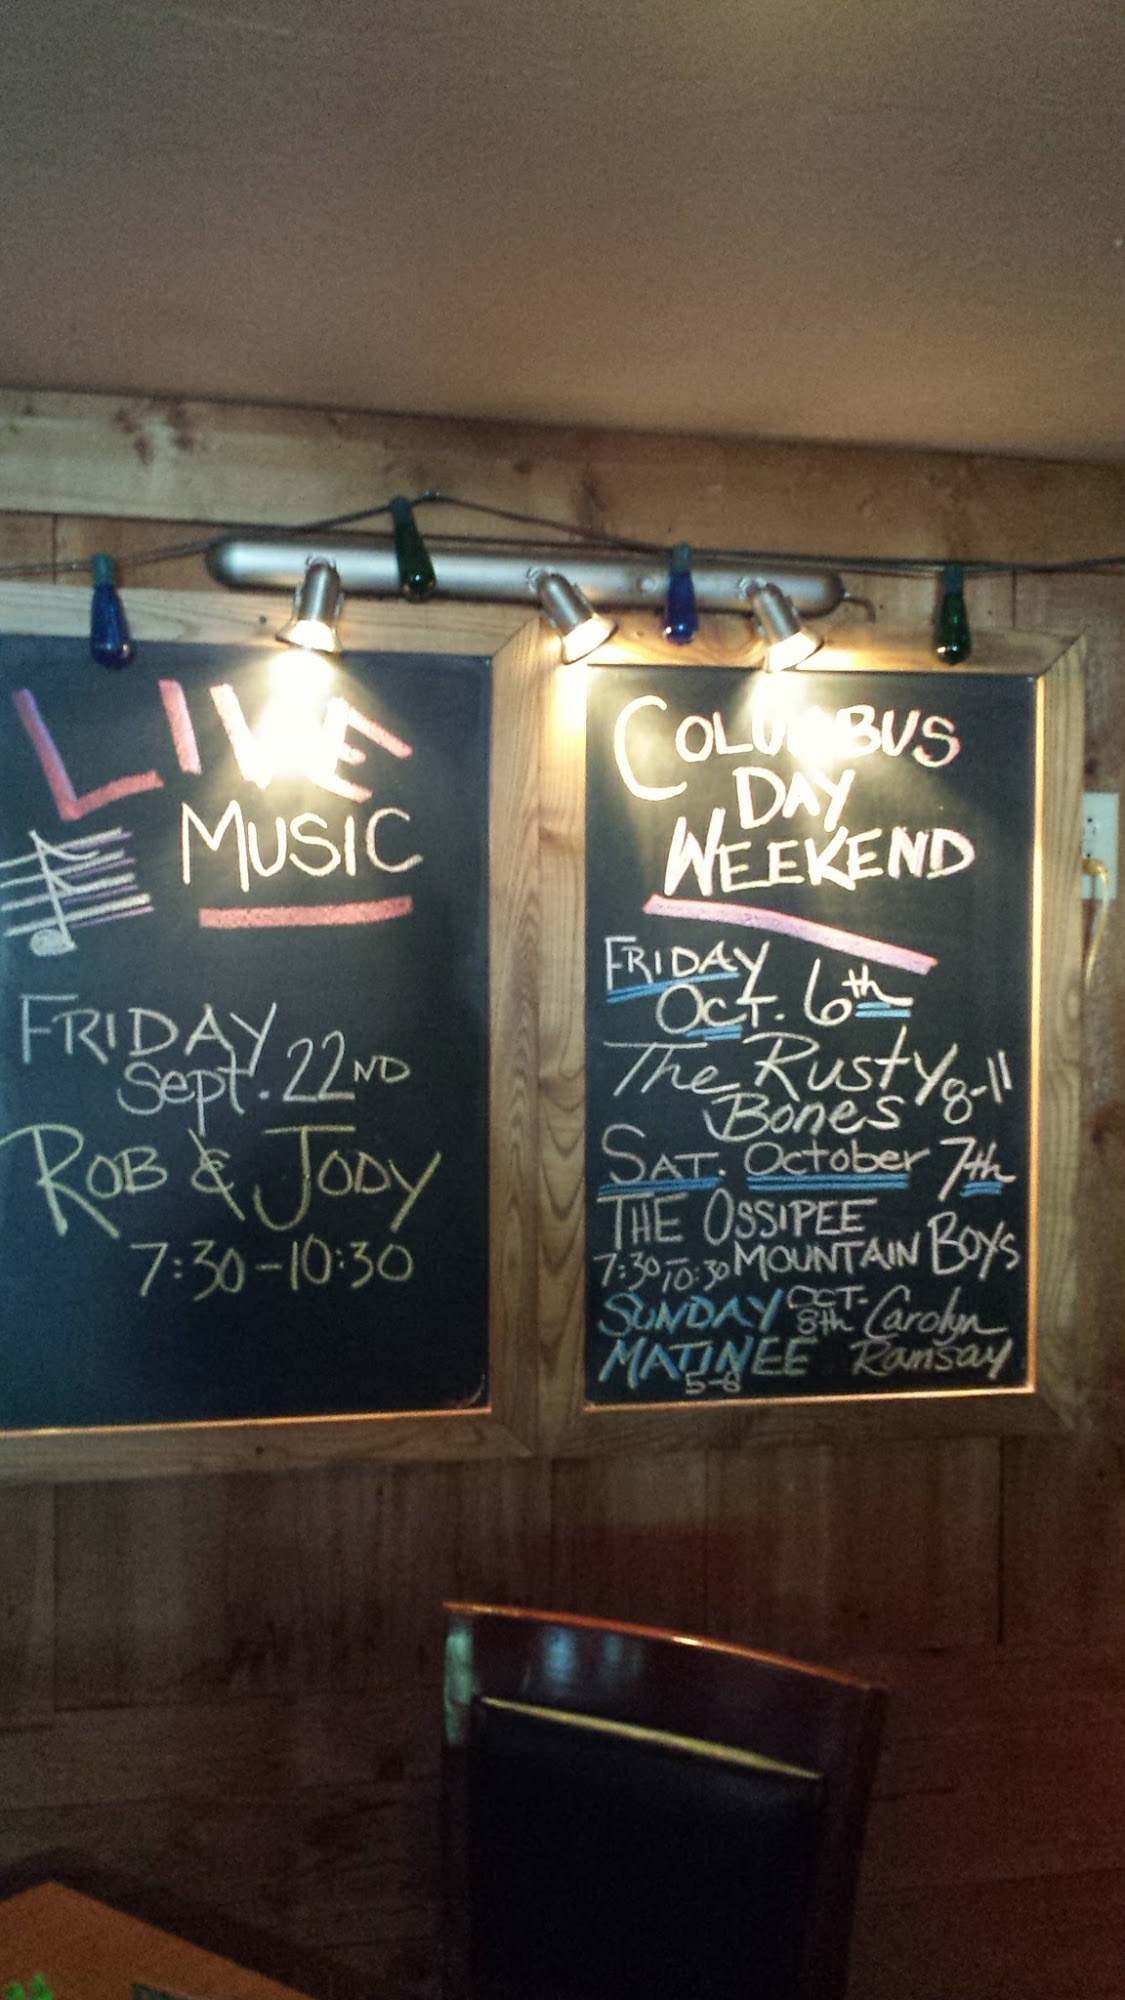 LIVE
MUSIC
FRIDAY
Sept. 22ND
ROB & JODY
7:30-10:30
COLUMBUS
DAY
WEEKEND
FRIDAY
OCT. 6th
The Rusty 8-11
Bones
SAT. October 7th
THE OSSIPEE
7:30-10:30 MOUNTAIN BOYS
SUNDAY OCT. 8th Carolyn
MATINEE Ramsay
5-8